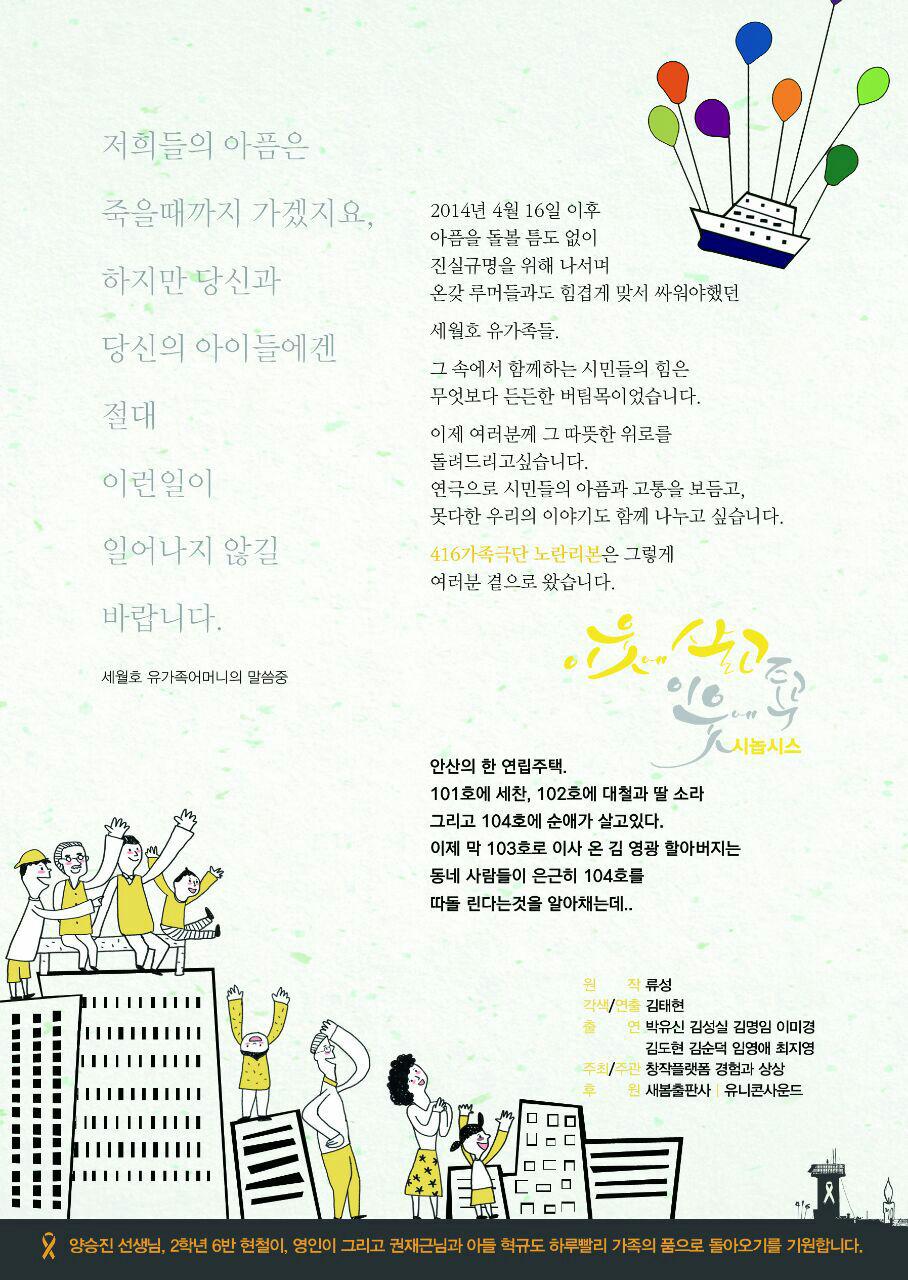 저희들의 아픔은
죽을때까지 가겠지요,
하지만 당신과
당신의 아이들에겐
절대
이런일이
일어나지 않길
바랍니다.
세월호 유가족어머니의 말씀중
2014년 4월 16일 이후
아픔을 돌볼 틈도 없이
진실규명을 위해 나서며
온갖 루머들과도 힘겹게 맞서 싸워야했던
세월호 유가족들.
그 속에서 함께하는 시민들의 힘은
무엇보다 든든한 버팀목이었습니다.
이제 여러분께 그 따뜻한 위로를
돌려드리고싶습니다.
연극으로 시민들의 아픔과 고통을 보듬고,
못다한 우리의 이야기도 함께 나누고 싶습니다.
416가족극단 노란리본은 그렇게
여러분 곁으로 왔습니다.
이웃에 살고
이웃에 죽고
시놉시스
안산의 한 연립주택.
101호에 세찬, 102호에 대철과 딸 소라
그리고 104호에 순애가 살고있다.
이제 막 103호로 이사 온 김 영광 할아버지는
동네 사람들이 은근히 104호를
따돌 린다는것을 알아채는데..
원 작 류성
각색/연출 김태현
출 연 박유신 김성실 김명임 이미경
김도현 김순덕 임영애 최지영
주최/주관 창작플랫폼 경험과 상상
후 원 새봄출판사 | 유니콘사운드
양승진 선생님, 2학년 6반 현철이, 영인이 그리고 권재근님과 아들 혁규도 하루빨리 가족의 품으로 돌아오기를 기원합니다.